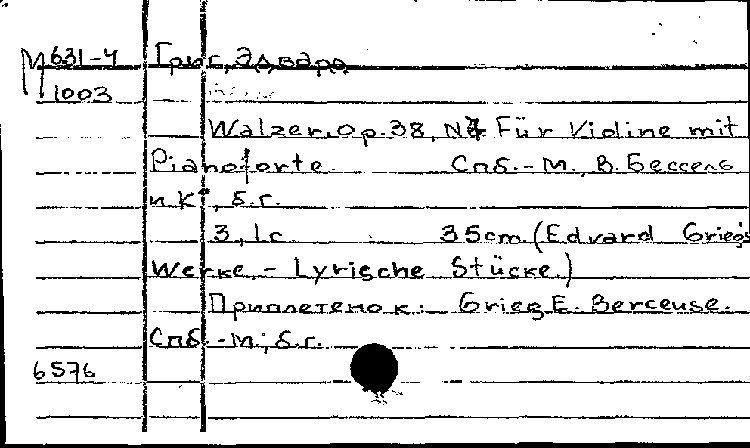 М 631-4 Григ, Эдвард
1003
Walzer, op. 38, N7 Für Violine mit
Pianoforte. Спб.-М., В. Бессель
и К°, б.г.
3, 1 с. 35cm. (Edvard Grieg's
Werke. - Lyrische Stücke.)
Приплетено к: Grieg E. Berceuse.
Спб.-М., б.г.
6576